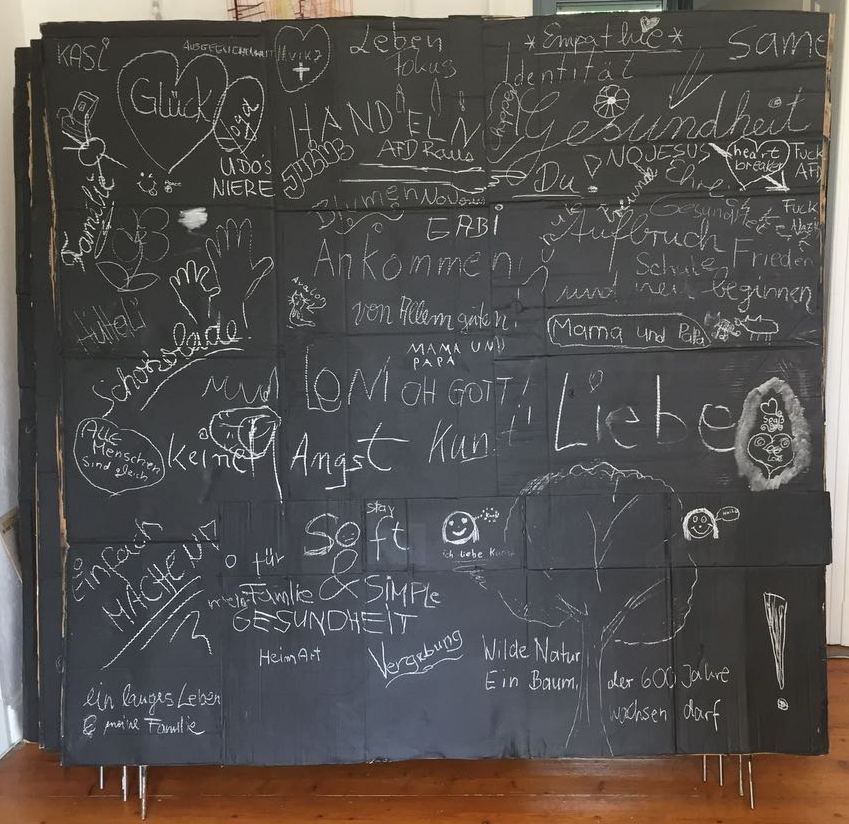 KASi
AUSGEGLICHENHEIT
Leben
Fokus
*Empathie*
same
Identität
Glück
Yoga
HANDELN
Gesundheit
JULIUS
AFD Raus
UDOS
NIERE
Familie
Du
NO JESUS
heart
breaker
Fuck
AFD
Ehre
Blumen
Freunde
Gesundheit
Fuck
Nazis
GABi
Aufbruch
Schulen
Frieden
Ankommen
und neu beginnen
von Allem guten
Mama und Papa
Schokolade
MAMA UND
PAPA
und
LONi
OH GOTT!
Liebe
Spaß
Alle
Menschen
sind gleich
keine
Angst
Kunst
stay
Soft
ich liebe Kunst
einfach
MACHEN
für
meine Familie
& SiMPLe
GESUNDHEIT
HeimArt
Vergebung
Wilde Natur
Ein Baum,
der 600 Jahre
wachsen darf
!
ein langes Leben
& meine Familie